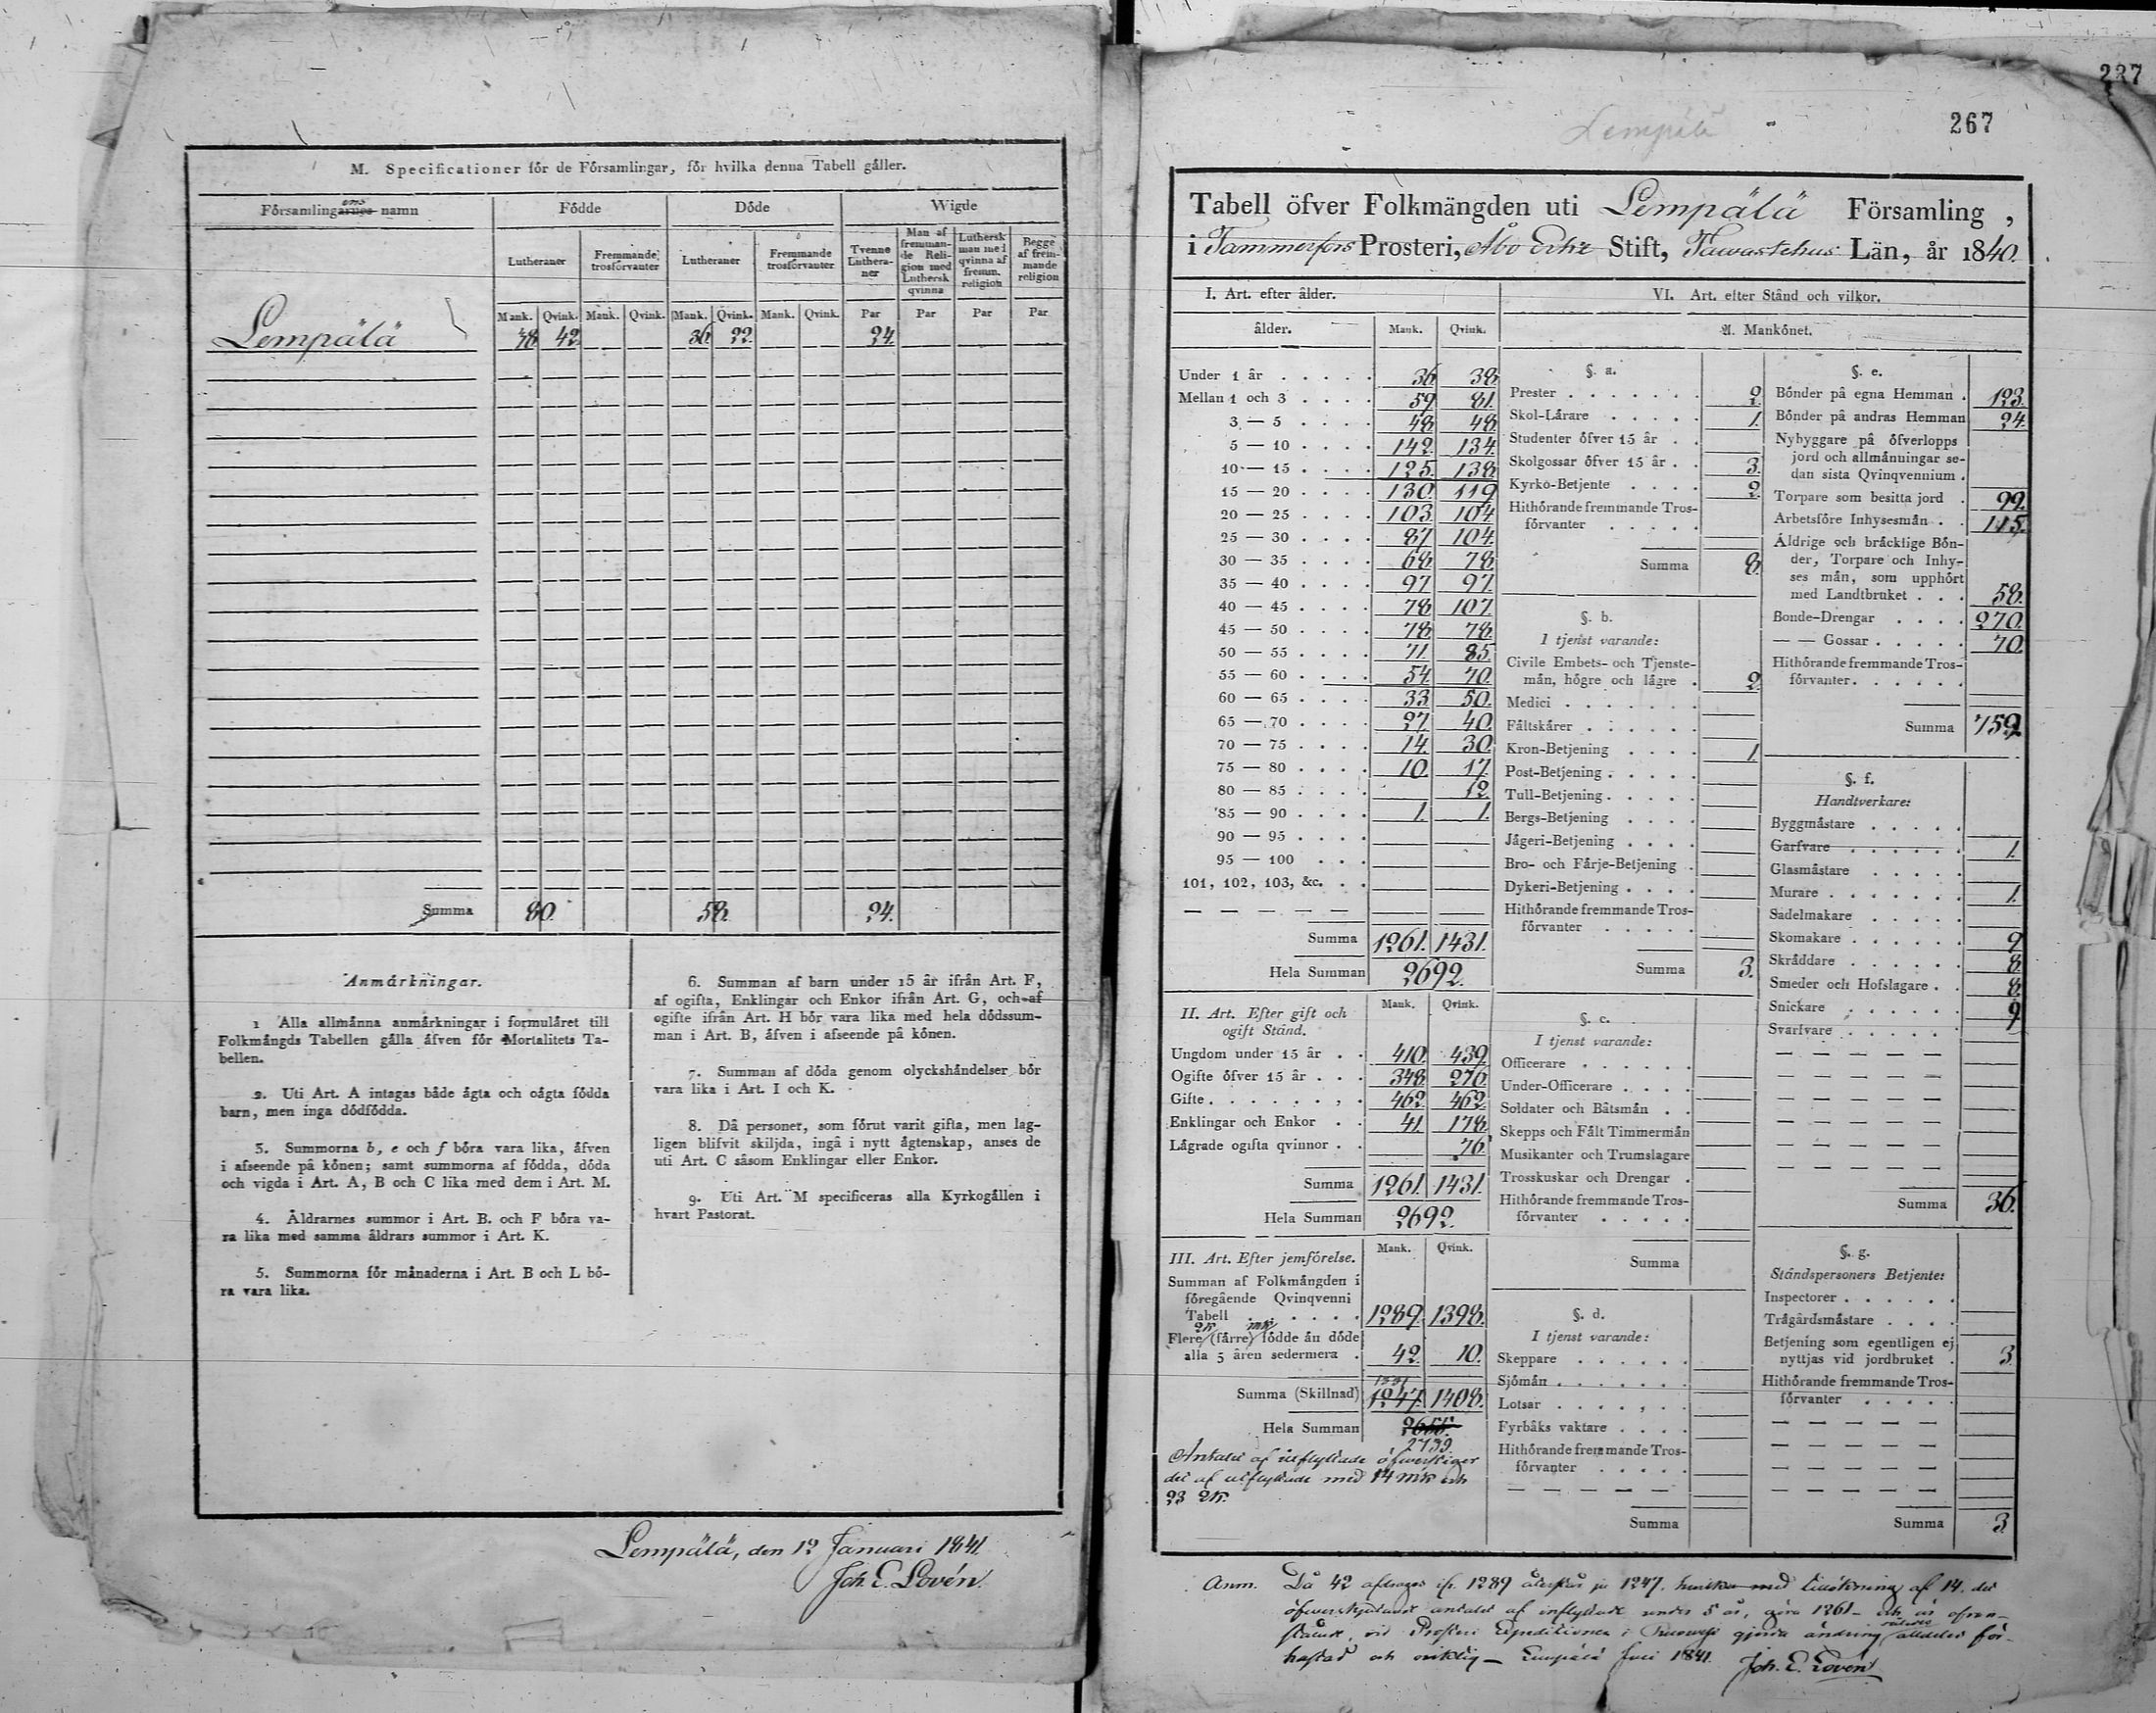 M. Specificationer för de Församlingar, för hvilka denna Tabell gäller.
Församlingarnes ens namn Födde Döde Wigde
Lutheraner Fremmande trosförvanter Lutheraner Fremmande trosförvanter Tvenne Lutheraner Man af fremmande Religion med Luthersk qvinna Luthersk man med qvinna af fremm. religion Begge af fremmande religion
Mank. Qvink. Mank. Qvink. Mank. Qvink. Mank. Qvink. Par Par Par Par
Lempälä 48 42. 36 22. 24.
Summa 80. 58. 24.
Anmärkningar.
1 Alla allmänna anmärkningar i formuläret till
Folkmängds Tabellen gälla äfven för Mortalitets Ta-
bellen.
2. Uti Art. A intagas både ägta och oägta födda
barn, men inga dödfödda.
3. Summorna b, e och f böra vara lika, äfven
i afseende på könen; samt summorna af födda, döda
och vigda i Art. A, B och C lika med dem i Art. M.
4. Äldrarnes summor i Art. B. och F böra va-
ra lika med samma åldrars summor i Art. K.
5. Summorna för månaderna i Art. B och L bö-
ra vara lika.
6. Summan af barn under 15 år ifrån Art. F,
af ogifta, Enklingar och Enkor ifrån Art. G, och af
ogifte ifrån Art. H bör vara lika med hela dödssum-
man i Art. B, äfven i afseende på könen.
7. Summan af döda genom olyckshändelser bör
vara lika i Art. I och K.
8. Då personer, som förut varit gifta, men lag-
ligen blifvit skiljda, ingå i nytt ägtenskap, anses de
uti Art. C såsom Enklingar eller Enkor.
9. Uti Art. M specificeras alla Kyrkogällen i
hvart Pastorat.
Lempälä, den 12 Januari 1841.
Joh. E. Lovén.
227
267
Lempälä
Tabell öfver Folkmängden uti Lempälä Församling,
i Tammerfors Prosteri, Åbo Erke Stift, Tawastehus Län, år 1840.
I. Art. efter ålder.
ålder. Mank. Qvink.
Under 1 år 36 38
Mellan 1 och 3 59 81.
3 — 5 48 48
5 — 10 142 134.
10 — 15 125. 138
15 — 20 130 119
20 — 25 103 104
25 — 30 87 104
30 — 35 68 78
35 — 40 97 97.
40 — 45 78 107.
45 — 50 78 78.
50 — 55 71 85.
55 — 60 54 70.
60 — 65 33 50.
65 — 70 27 40.
70 — 75 14 30.
75 — 80 10. 17
80 — 85 12.
85 — 90 1. 1.
90 — 95
95 — 100
101, 102, 103, &c.
Summa 1261. 1431.
Hela Summan 2692.
II. Art. Efter gift och
ogift Stånd. Mank. Qvink.
Ungdom under 15 år 410. 439.
Ogifte öfver 15 år 348 276.
Gifte 462 462
Enklingar och Enkor 41 178
Lägrade ogifta qvinnor 76
Summa 1261 1431.
Hela Summan 2692.
III. Art. Efter jemförelse. Mank. Qvink.
Summan af Folkmängden i
föregående Qvinqvenni
Tabell 1289. 1398.
Flere (färre) födde än döde
alla 5 åren sedermera 42. 10.
1331
Summa (Skillnad) 1247. 1408.
Hela Summan 2655.
2739.
Antalet af inflyttade öfwerstiger
det af utflyttade med 14 mk och
23 2k.
VI. Art. efter Stånd och vilkor.
A. Mankönet.
§. a.
Prester 2.
Skol-Lärare 1.
Studenter öfver 15 år
Skolgossar öfver 15 år 3.
Kyrko-Betjente 2.
Hithörande fremmande Tros-
förvanter
Summa 8.
§. b.
I tjenst varande:
Civile Embets- och Tjenste-
män, högre och lägre 2.
Medici
Fältskärer
Kron-Betjening 1.
Post-Betjening
Tull-Betjening
Bergs-Betjening
Jägeri-Betjening
Bro- och Färje-Betjening
Dykeri-Betjening
Hithörande fremmande Tros-
förvanter
Summa 3.
§. c.
I tjenst varande:
Officerare
Under-Officerare
Soldater och Båtsmän
Skepps och Fält Timmermän
Musikanter och Trumslagare
Trosskuskar och Drengar
Hithörande fremmande Tros-
förvanter
Summa
§. d.
I tjenst varande:
Skeppare
Sjömän
Lotsar
Fyrbåks vaktare
Hithörande fremmande Tros-
förvanter
Summa
§. e.
Bönder på egna Hemman 123.
Bönder på andras Hemman 24.
Nybyggare på öfverlopps
jord och allmänningar se-
dan sista Qvinqvennium
Torpare som besitta jord 99.
Arbetsföre Inhysesmän 115.
Äldrige och bräcklige Bön-
der, Torpare och Inhy-
ses män, som upphört
med Landtbruket 58.
Bonde-Drengar 270.
— — Gossar 70.
Hithörande fremmande Tros-
förvanter
Summa 759.
§. f.
Handtverkare:
Byggmästare
Garfvare 1.
Glasmästare
Murare 1.
Sadelmakare
Skomakare 9
Skräddare 8
Smeder och Hofslagare 8
Snickare
Svarfvare
Summa 36.
§. g.
Ståndspersoners Betjente:
Inspectorer
Trägårdsmästare
Betjening som egentligen ej
nyttjas vid jordbruket 3
Hithörande fremmande Tros-
förvanter
Summa 3
Anm. Då 42 afdrages ifr. 1289 återstår ju 1247. hwilka med tillökning af 14. det
öfwerskjutande antalet af inflyttade under 5 år, göra 1261 — och är ofvan-
stående, vid Prosteri Expeditionen i gjorda ändring således alldeles för-
hastad och oriktig — Lempälä Juni 1841. Joh. E. Lovén